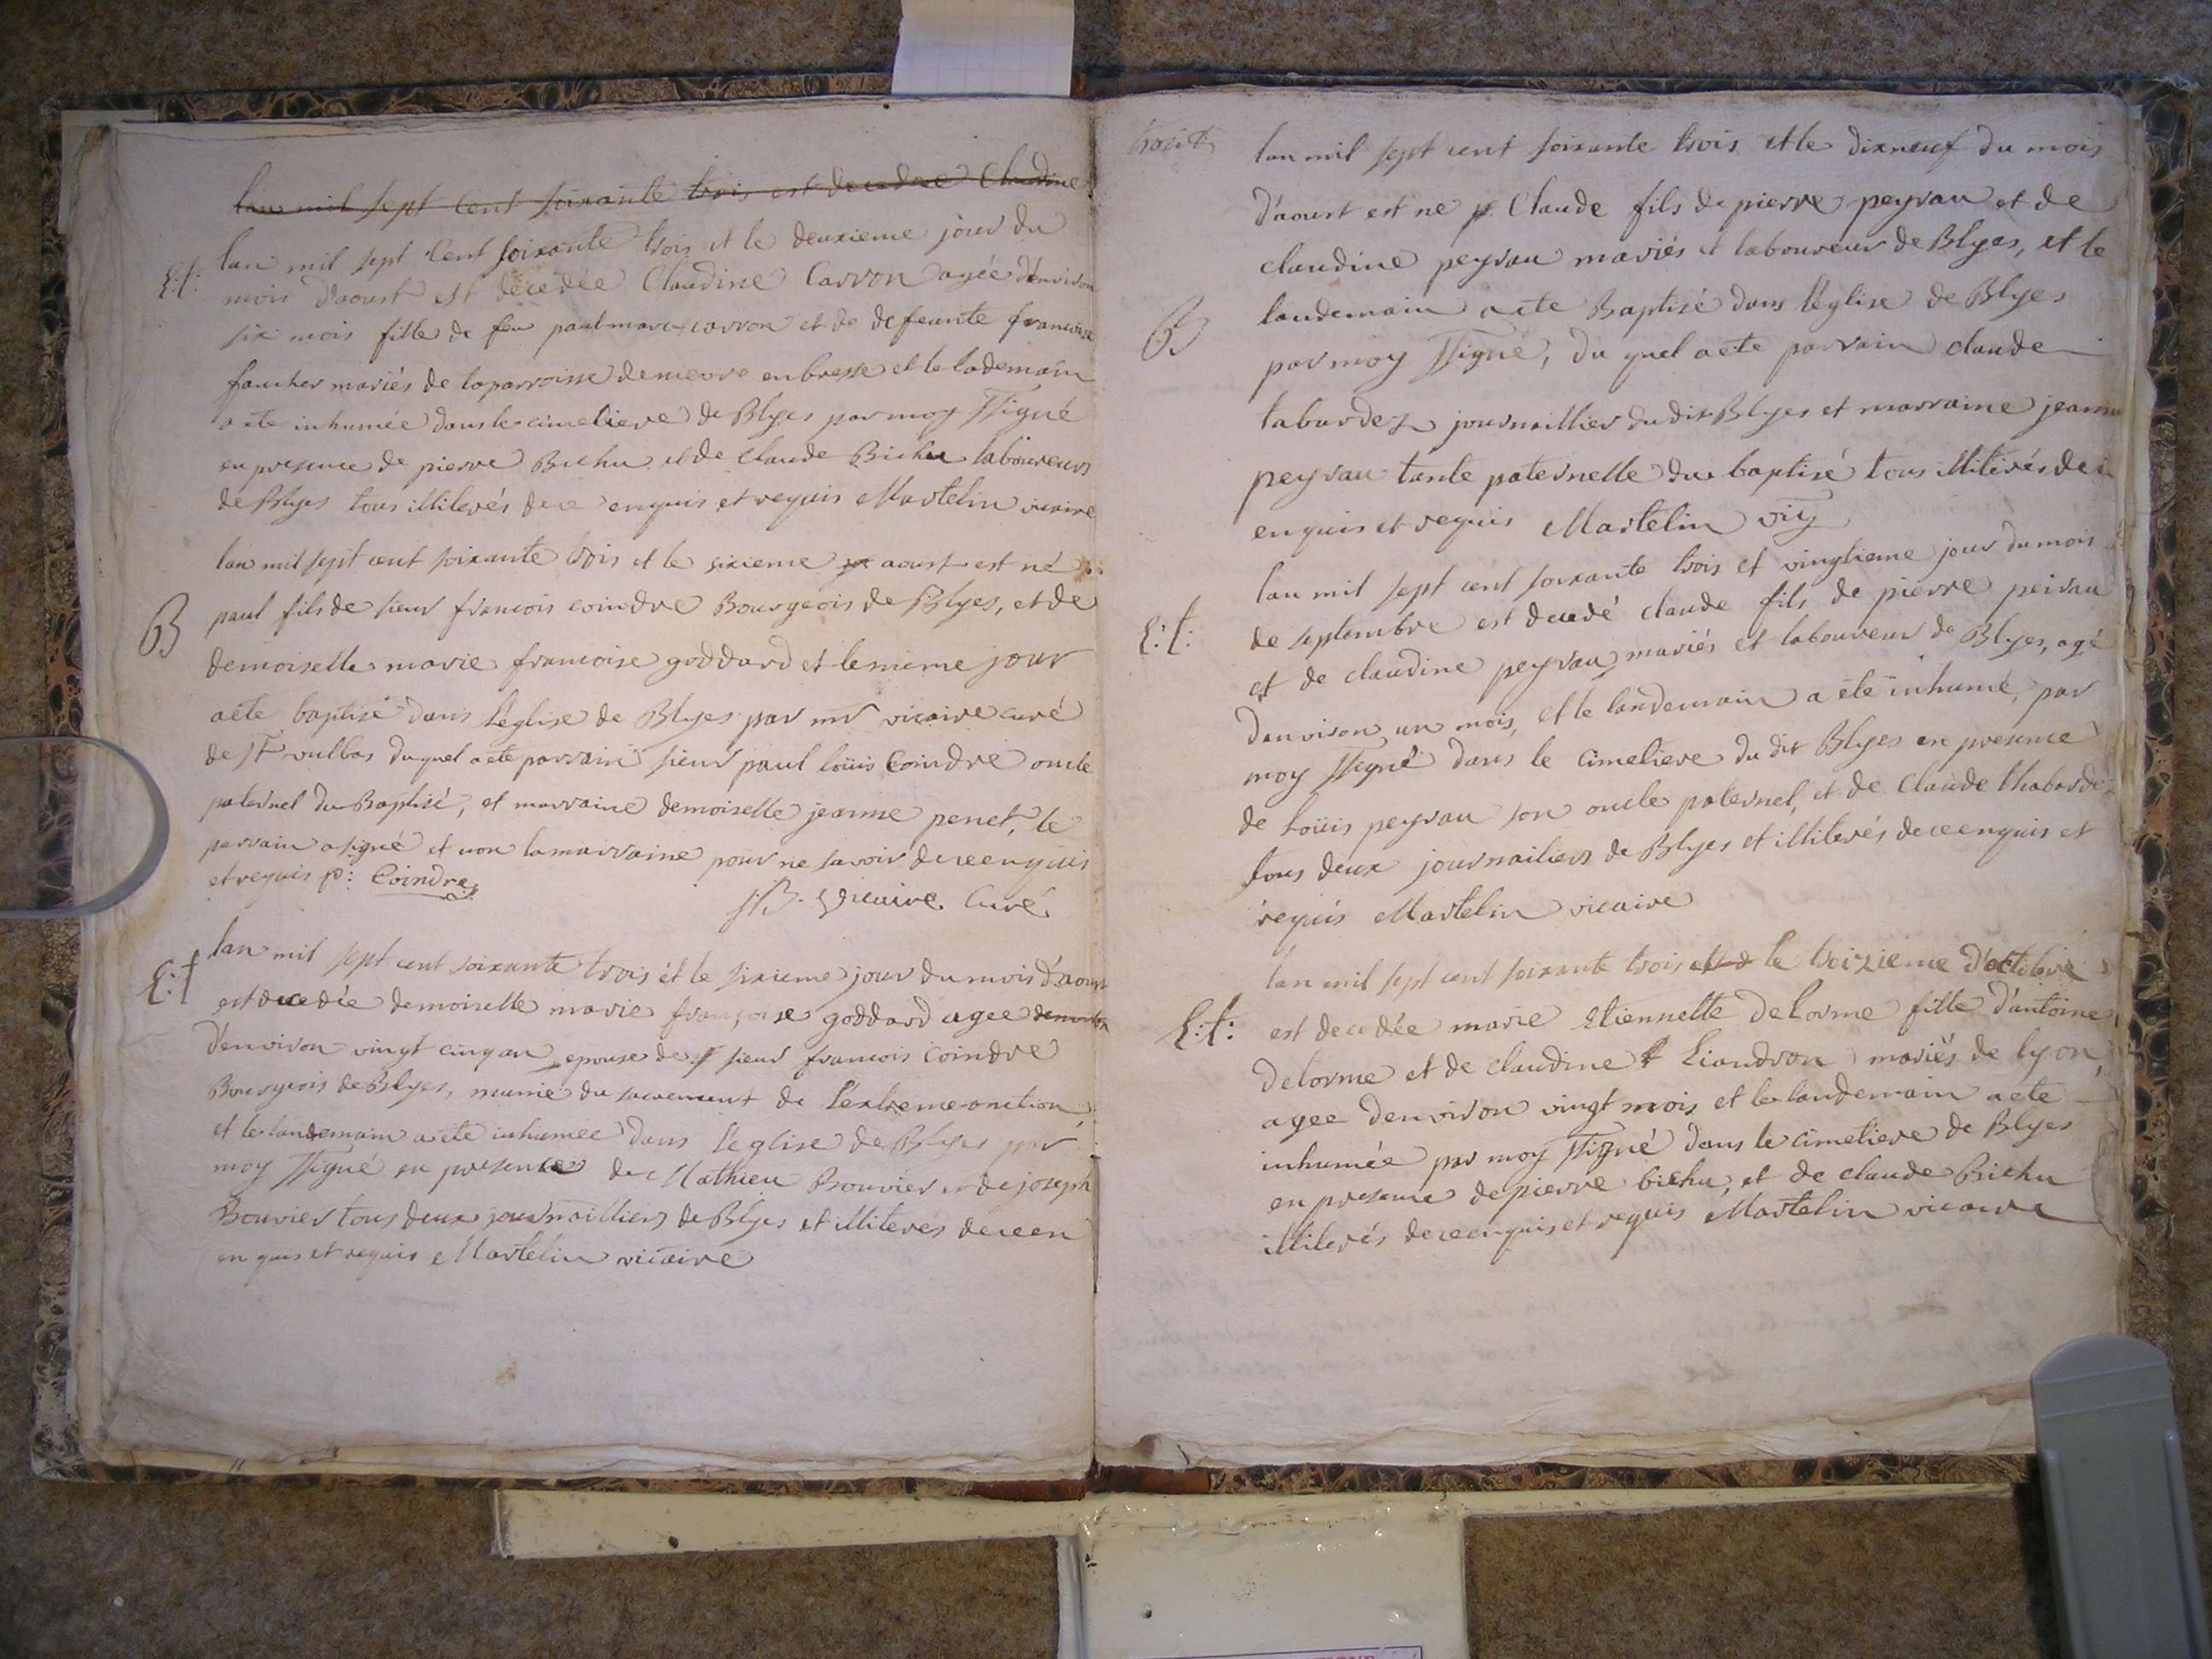 lan mil sept cent soixante trois est decedee Claudine
E:t: lan mil sept Cent soixante trois et le deuxieme jour du
mois d'aoust est décedée Claudine Carron agée d'environ
six mois fille de feu paul marc carron et de defeunte francoise
faucher mariés de laparroisse de en bresse et le lademain
a ete inhumée dans le cimetiere de Blyes par moy ssigné
en presence de pierre Bichu et de Claude Bichu laboureurs
de Blyes tous illiterés de ce enquis et requis Martelin vicaire
lan mil sept cent soixante trois et le sixieme aoust est né
B paul fils de sieur francois coindre Bourgeois de Blyes, et de
demoiselle marie francoise goddard et le meme jour
a éte baptisé dans l'église de Blyes par mr vicaire curé
de st vulbas duquel a ete parrain sieur paul loüis Coindre oncle
paternel du Baptisé, et marraine demoiselle jeanne penet, le
parrain a signé et non lamarraine pour ne savoir de ce enquis
et requis p: Coindre
vicaire Curé
E:t lan mil sept cent soixante trois et le sixieme jour du mois d'aoust
est decedée demoiselle marie françoise goddard agee denviron
d'environ vingt cinq an epouse de sieur francois coindre
Bourgeois de Blyes, munie du sacrement de l'extreme onction,
et le landemain a ete inhumee dans l'eglise de Blyes par
moy ssigné en presence de Mathieu Bouvier et de joseph
Bouvier tous deux journailliers de Blyes et illiterés de ce en
enquis et requis Martelin vicaire
lan mil sept cent soixante trois et le dixneuf du mois
d'aoust est ne p Claude fils de pierre peyrau et de
claudine peyrau mariés et laboureur de Blyes, et le
B landemain a ete Baptisé dans l'église de Blyes
par moy ssigné, du quel a ete parrain claude
tabardez journaillier du dit Blyes et marraine jeanne
peyrau tante paternelle du baptisé tous illiterés de ce
enquis et requis Martelin
lan mil sept cent soixante trois et vingtieme jour du mois
E:t: de septembre est decedé claude fils de pierre peirau
et de claudine peyrau mariés et laboureur de Blyes, agé
d'environ un mois, et le landemain a ete inhumé, par
moy ssigné dans le cimetiere du dit Blyes en presence
de Loüis peyrau son oncle paternel, et de Claude thabarde
tous deux journailiers de Blyes et illiterés de ce enquis et
requis Martelin vicaire
lan mil sept cent soixante trois et d le troizieme d'octobre
E:t: est decedée marie Etiennette Delorme fille d'antoine
Delorme et de claudine Liandron mariés de lyon,
agee d'environ vingt mois et le landemain a ete
inhumée par moy ssigné dans le cimetiere de Blyes
en presence de pierre bichu, et de claude Bichu
illiterés de ce enquis et requis Martelin vicaire